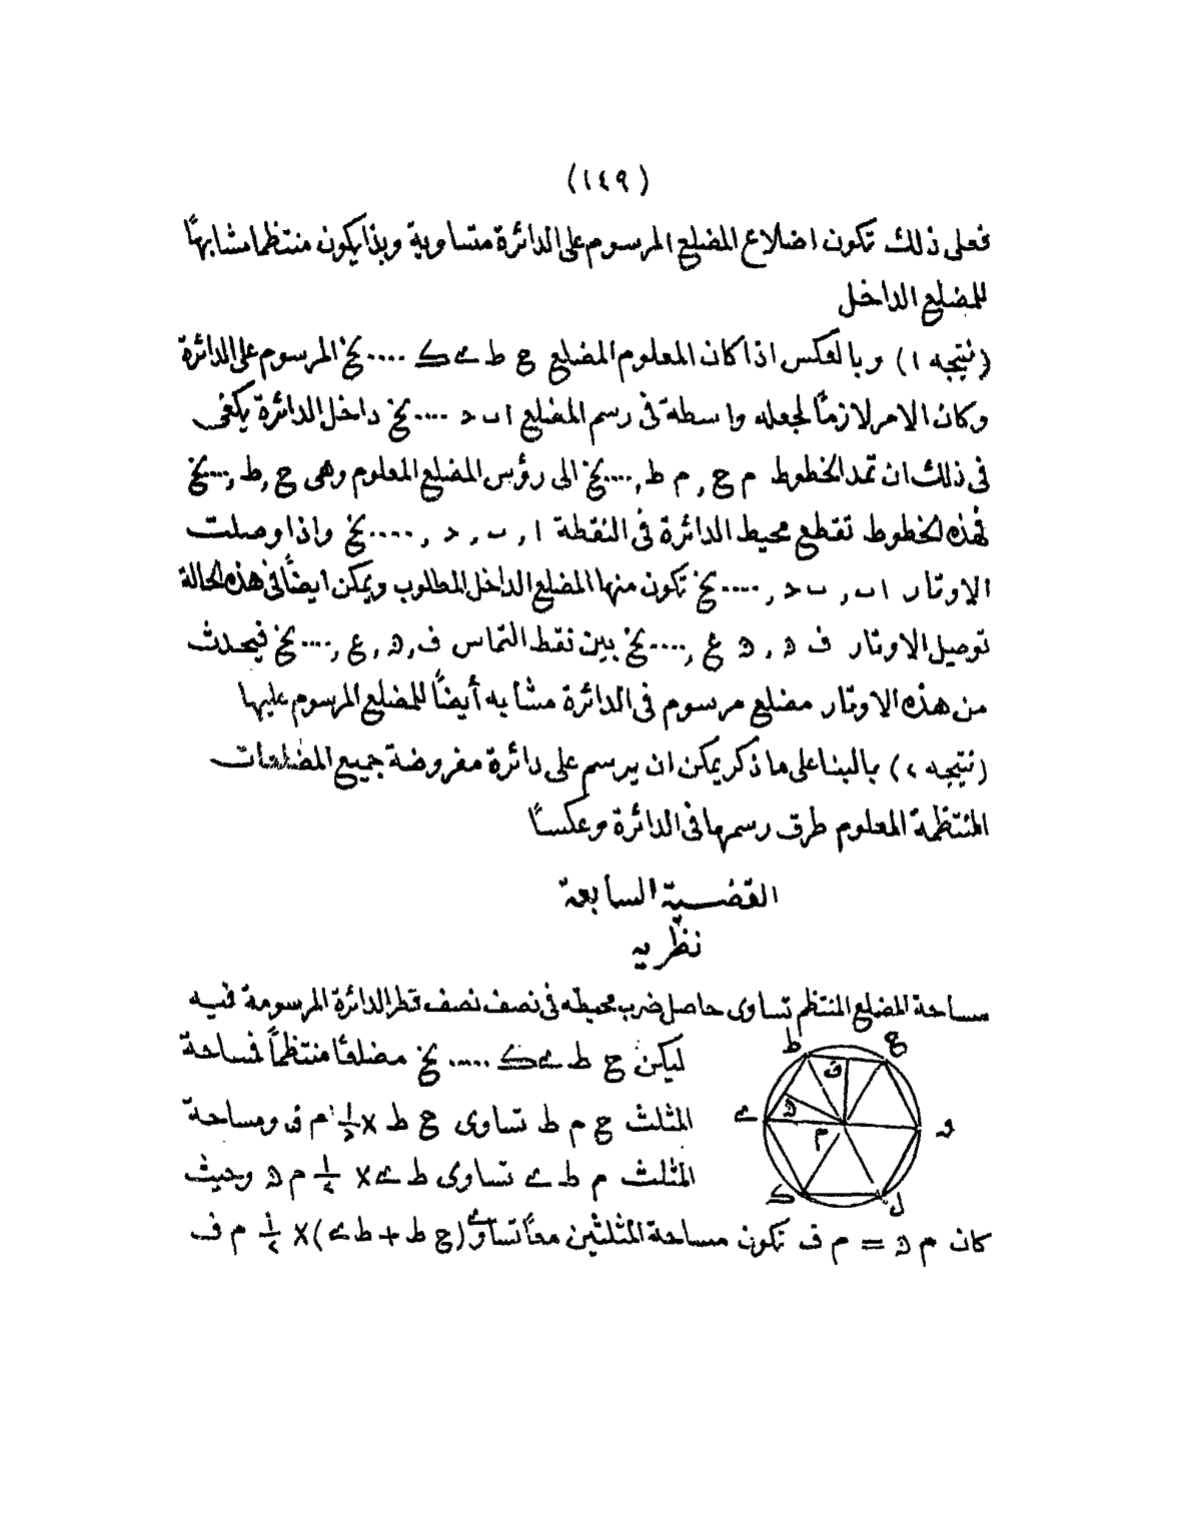 (١٤٩)
فعلى ذلك تكون اضلاع المضلع المرسوم على الدائرة متساوية وبذا يكون منتظما مشابهًا
للمضلع الداخل
(نتيجه ١) وبالعكس اذا كان المعلوم المضلع ح ط ى ك .... لخ المرسوم على الدائرة
وكان الامر لازمًا لجعله واسطة فى رسم المضلع ا ب د .... لخ داخل الدائرة يكفى
فى ذلك ان تمد الخطوط م ح , م ط , .... لخ الى رؤس المضلع المعلوم وهى ح , ط , .... لخ
فهذه الخطوط تقطع محيط الدائرة فى النقطة ا , ب , د , .... لخ واذا وصلت
الاوتار ا ب , ب د , .... لخ تكون منها المضلع الداخل المطلوب ويمكن ايضًا فى هذه الحالة
توصيل الاوتار ف ھ , ھ ع , .... لخ بين نقط التماس ف , ھ , ع , .... لخ فيحدث
من هذه الاوتار مضلع مرسوم فى الدائرة مشابه أيضًا للمضلع المرسوم عليها
(نتيجه ٢) بالبنا على ما ذكر يمكن ان يرسم على دائرة مفروضة جميع المضلعات
المنتظمة المعلوم طرق رسمها فى الدائرة وعكسًا
القضية السابعة
نظريه
مساحة المضلع المنتظم تساوى حاصل ضرب محيطه فى نصف نصف قطر الدائرة المرسومة فيه
ليكن ح ط ى ك ..... لخ مضلعًا منتظمًا فمساحة
المثلث ح م ط تساوى ح ط × ١/٢ م ف ومساحة
المثلث م ط ى تساوى ط ى × ١/٢ م ھ وحيث
كان م ھ = م ف تكون مساحة المثلثين معًا تساوى (ح ط + ط ى) × ١/٢ م ف
ط
ح
ف
ھ
ى
م
ك
ل